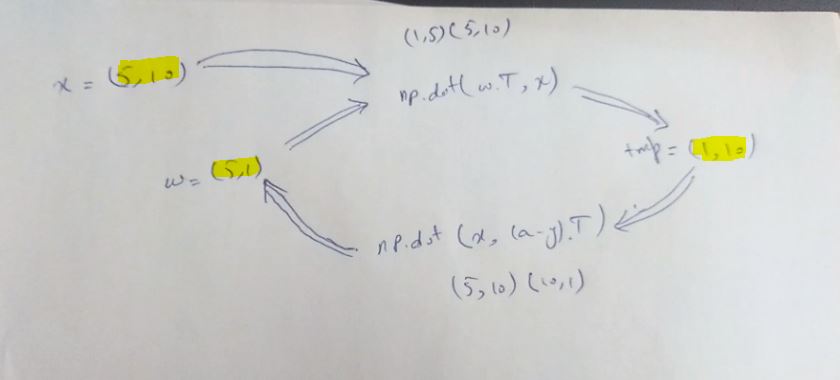 (1,5)(5,10)
x = (5,10)
np.dot(w.T, x)
tmp = (1,10)
w = (5,1)
np.dot (x, (a-y).T)
(5,10)(10,1)